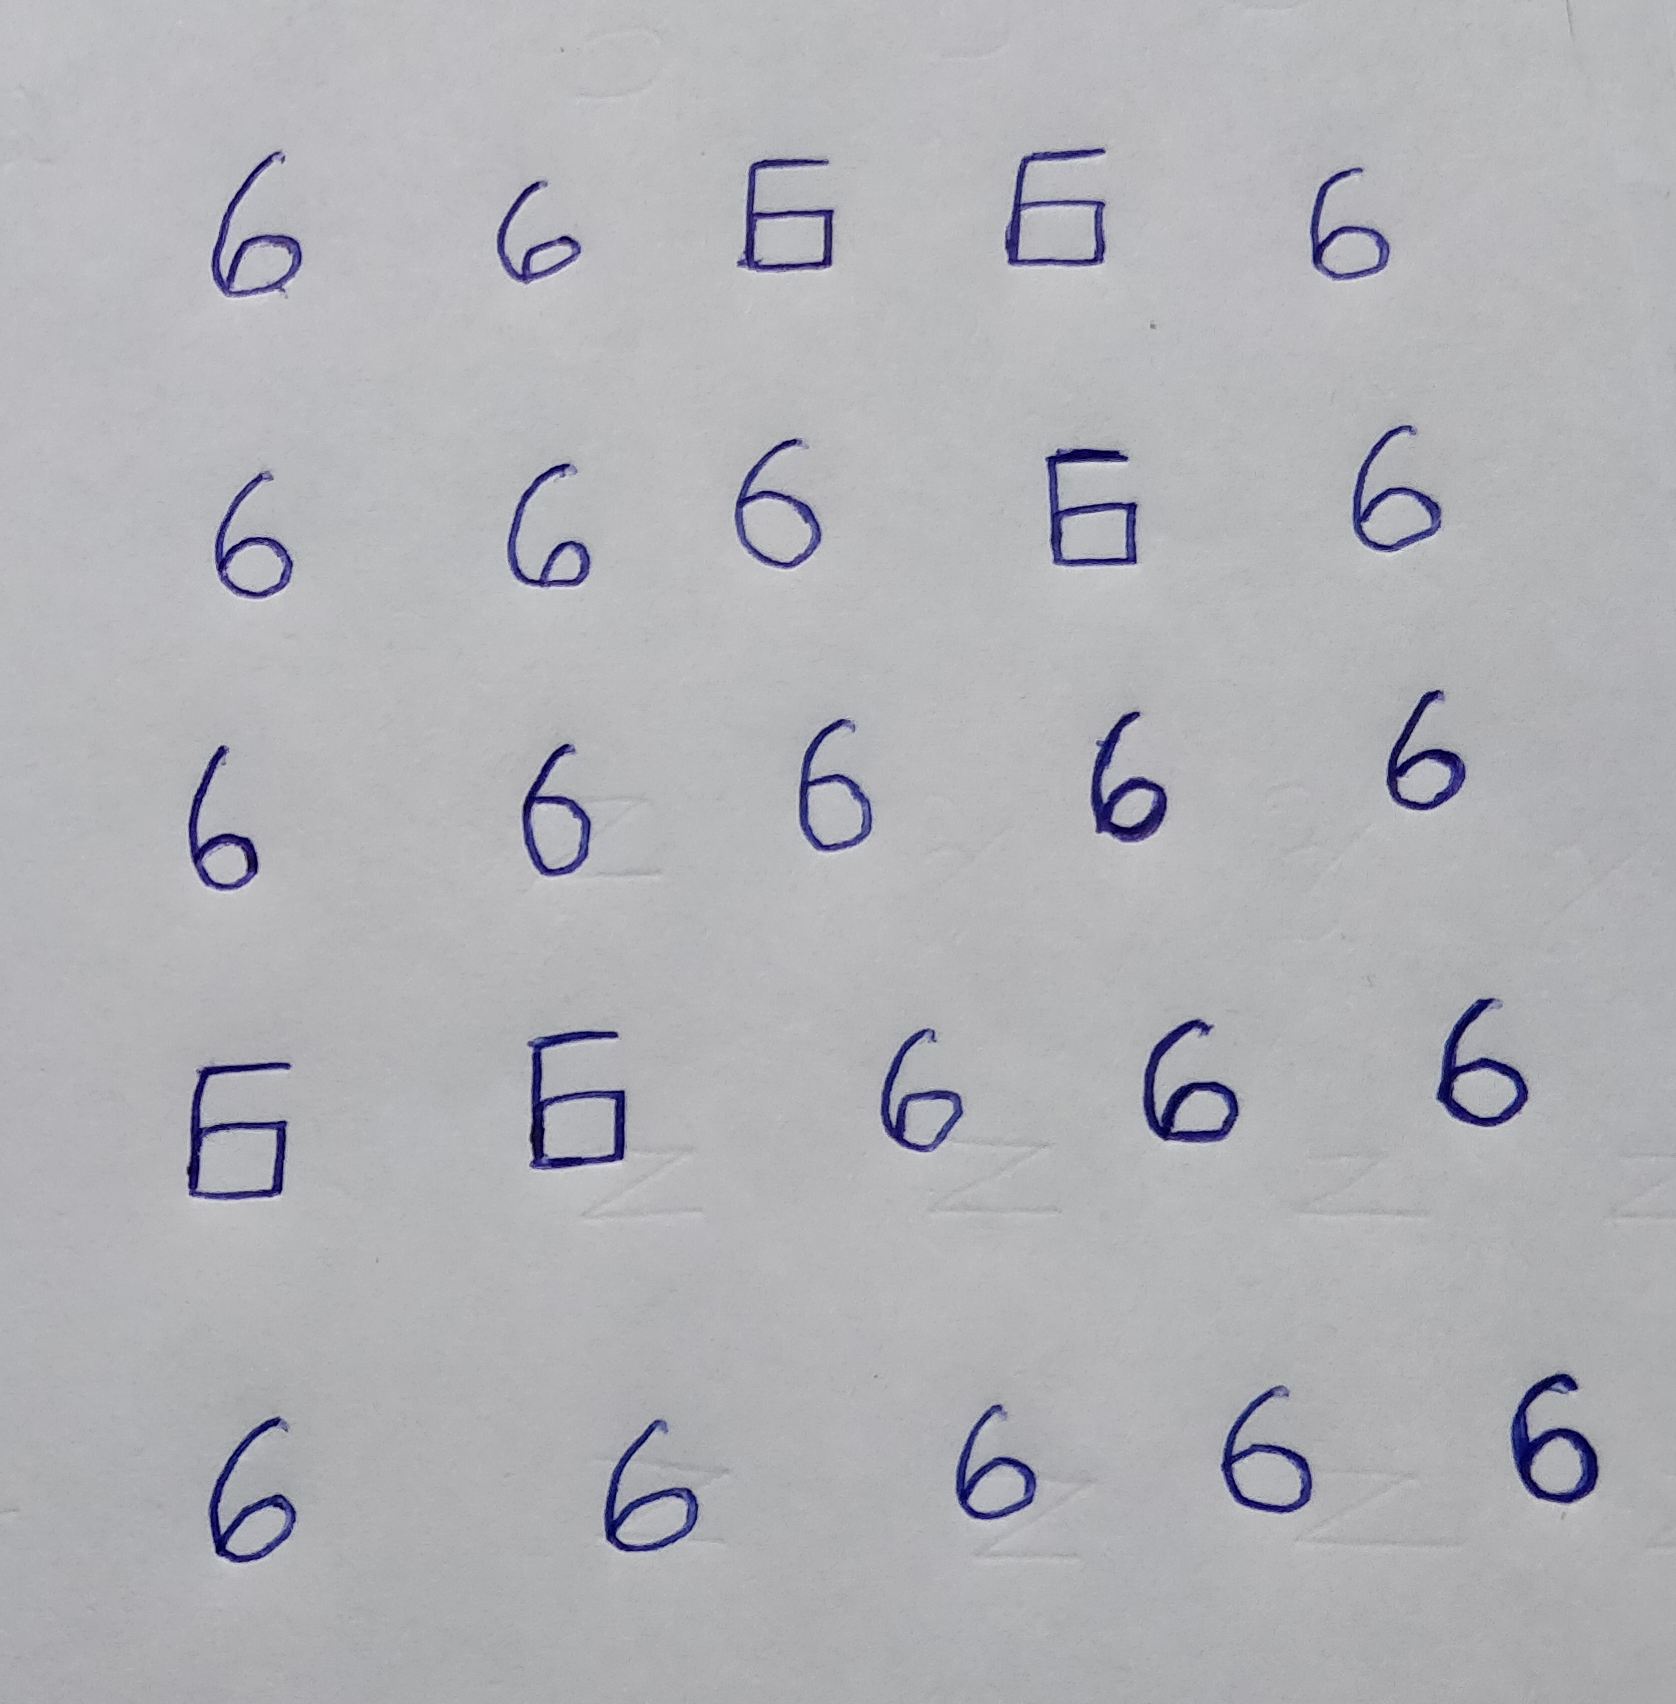 6 6 6 6 6
6 6 6 6 6
6 6 6 6 6
6 6 6 6 6
6 6 6 6 6